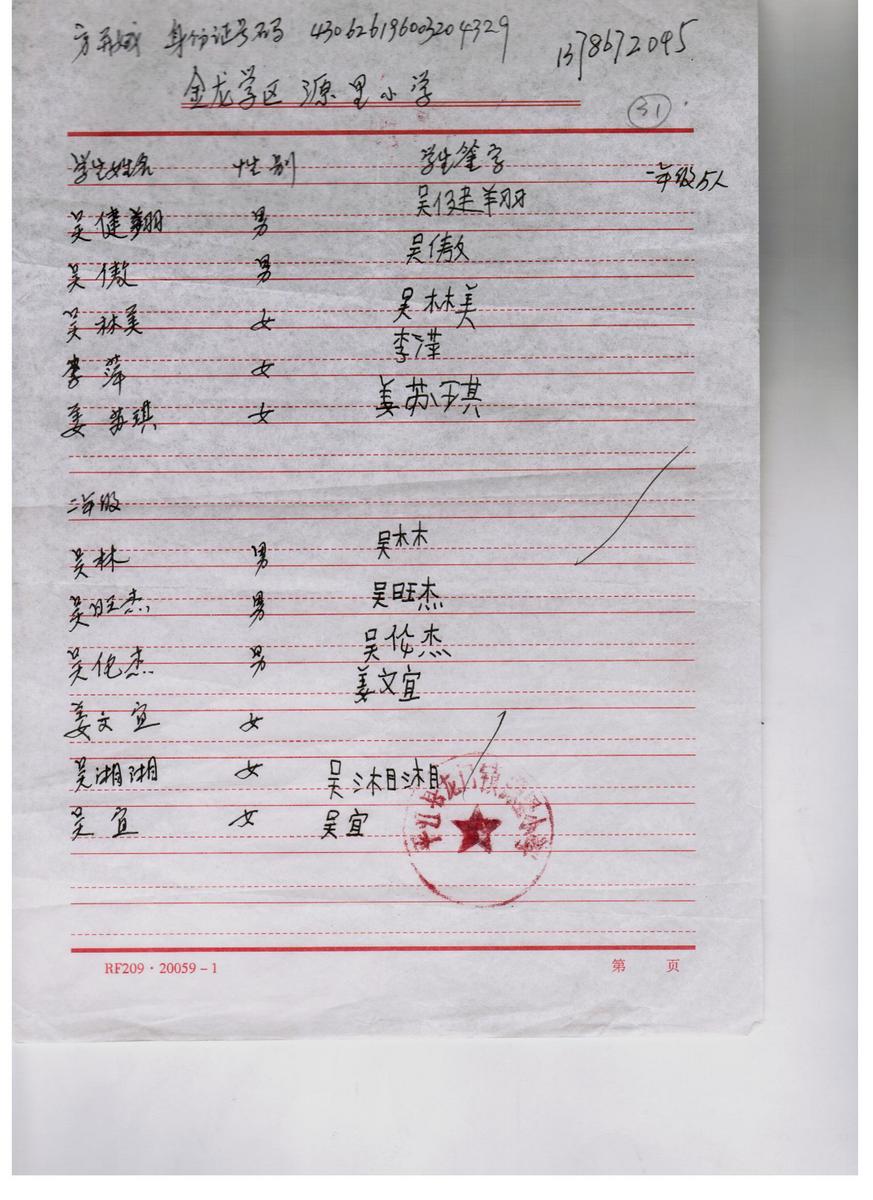 身份证号码 430626196003204329 1378672095
金龙学区 源里小学
31
学生姓名 性别 学生签字
一年级5人
吴健翔 男 吴健翔
吴傲 男 吴傲
吴林美 女 吴林美
李萍 女 李萍
姜苏琪 女 姜苏琪
二年级
吴林 男 吴林
吴旺杰 男 吴旺杰
吴佗杰 男 吴俊杰
姜文宜 女 姜文宜
吴湘湘 女 吴湘湘
吴宜 女 吴宜
平江县龙门镇源里小学
RF209·20059-1 第 页